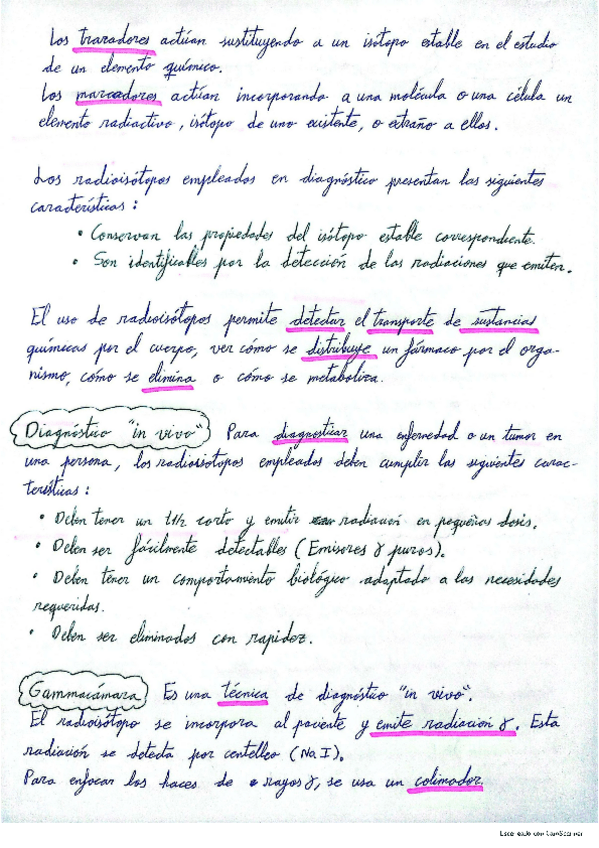 Los trazadores actúan sustituyendo a un isótopo estable en el estudio
de un elemento químico.
Los marcadores actúan incorporando a una molécula o una célula un
elemento radiactivo, isótopo de uno existente, o extraño a ellos.
Los radioisótopos empleados en diagnóstico presentan las siguientes
características:
• Conservan las propiedades del isótopo estable correspondiente.
• Son identificables por la detección de las radiaciones que emiten.
El uso de radioisótopos permite detectar el transporte de sustancias
químicas por el cuerpo, ver cómo se distribuye un fármaco por el orga-
nismo, cómo se elimina o cómo se metaboliza.
Diagnóstico "in vivo" Para diagnosticar una enfermedad o un tumor en
una persona, los radioisótopos empleados deben cumplir las siguientes carac-
terísticas:
• Deben tener un t1/2 corto y emitir radiación en pequeñas dosis.
• Deben ser fácilmente detectables (Emisores γ puros).
• Deben tener un comportamiento biológico adaptado a las necesidades
requeridas.
• Deben ser eliminados con rapidez.
Gammacámara Es una técnica de diagnóstico "in vivo".
El radioisótopo se incorpora al paciente y emite radiación γ. Esta
radiación se detecta por centelleo (NaI).
Para enfocar los haces de rayos γ, se usa un colimador.
Escaneado con CamScanner